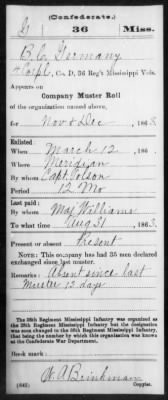 (Confederate.)
G 36 Miss.
B. C. Germany
Corpl, Co. D, 36 Reg't Mississippi Vols.
Appears on
Company Muster Roll
of the organization named above,
for Nov & Dec, 1863.
Enlisted:
When March 12, 186
Where Meridian
By whom Capt. Colson
Period 12 Mo
Last paid:
By whom Maj Williams
To what time Aug 31, 1863.
Present or absent Present
NOTE: This company has had 35 men declared
exchanged since last muster.
Remarks: Absent since last
Muster 15 days
The 36th Regiment Mississippi Infantry was organized
as the
Regiment Mississippi Infantry, but the designation
was soon changed to the
Regiment Mississippi Infantry,
that being the number by which this organization was known
at the Confederate War Department.
Book mark:
W. A. Brinkman
(642) Copyist.